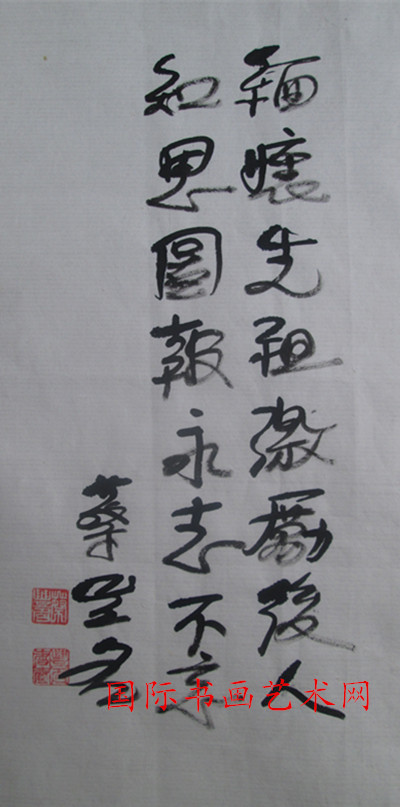 緬懷先祖激勵後人
知恩圖報永志不忘
蔡
国际书画艺术网